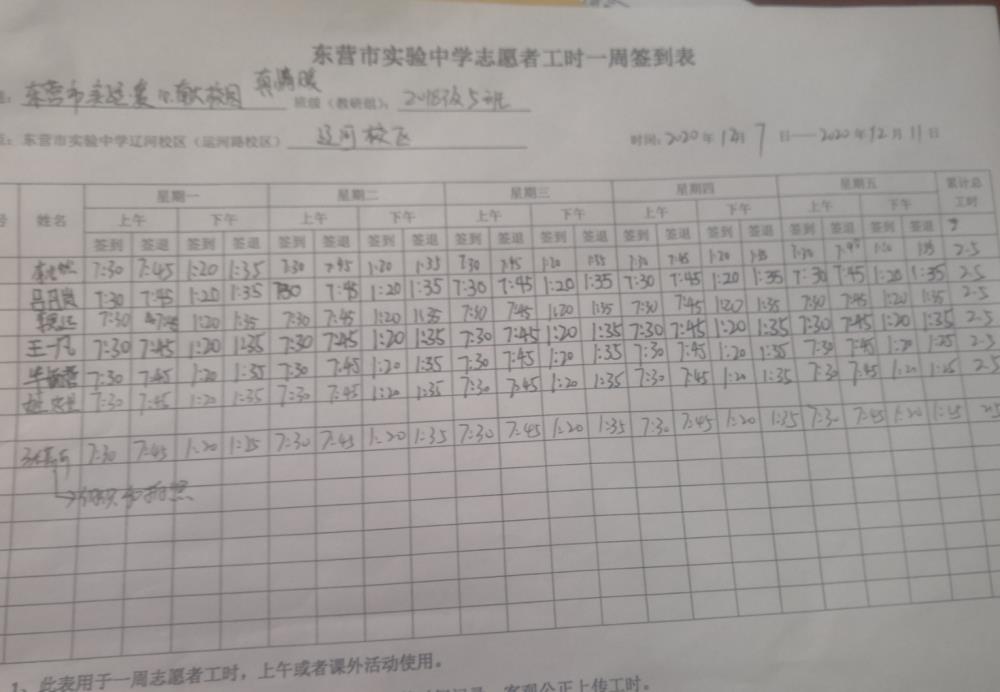 东营市实验中学志愿者工时一周签到表
东营市实 班级(教研组): 2018级5班
点: 东营市实验中学辽河校区(运河路校区) 辽河校区 时间: 2020年12月7日——2020年12月11日
号 姓名 星期一 星期二 星期三 星期四 星期五 累计总工时
上午 下午 上午 下午 上午 下午 上午 下午 上午 下午
签到 签退 签到 签退 签到 签退 签到 签退 签到 签退 签到 签退 签到 签退 签到 签退 签到 签退 签到 签退
7:30 7:45 1:20 1:35 7:30 7:45 1:20 1:35 7:30 7:45 1:20 1:35 7:30 7:45 1:20 1:35 7:30 7:45 1:20 1:35 2.5
7:30 7:45 1:20 1:35 7:30 7:45 1:20 1:35 7:30 7:45 1:20 1:35 7:30 7:45 1:20 1:35 7:30 7:45 1:20 1:35 2.5
7:30 7:45 1:20 1:35 7:30 7:45 1:20 1:35 7:30 7:45 1:20 1:35 7:30 7:45 1:20 1:35 7:30 7:45 1:20 1:35 2.5
王一凡 7:30 7:45 1:20 1:35 7:30 7:45 1:20 1:35 7:30 7:45 1:20 1:35 7:30 7:45 1:20 1:35 7:30 7:45 1:20 1:35 2.5
7:30 7:45 1:20 1:35 7:30 7:45 1:20 1:35 7:30 7:45 1:20 1:35 7:30 7:45 1:20 1:35 7:30 7:45 1:20 1:25 2.5
7:30 7:45 1:20 1:35 7:30 7:45 1:20 1:35 7:30 7:45 1:20 1:35 7:30 7:45 1:20 1:35 7:30 7:45 1:20 1:25 2.5
7:30 7:45 1:20 1:25 7:30 7:45 1:20 1:35 7:30 7:45 1:20 1:35 7:30 7:45 1:20 1:35 7:30 7:45 1:20 1:25 2.5
1、此表用于一周志愿者工时,上午或者课外活动使用。
客观公正上传工时。